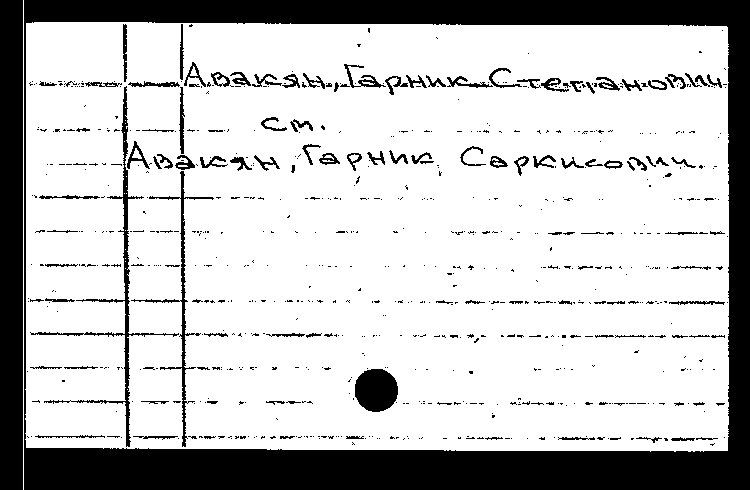 Авакян, Гарник Степанович
см.
Авакян, Гарник Саркисович.